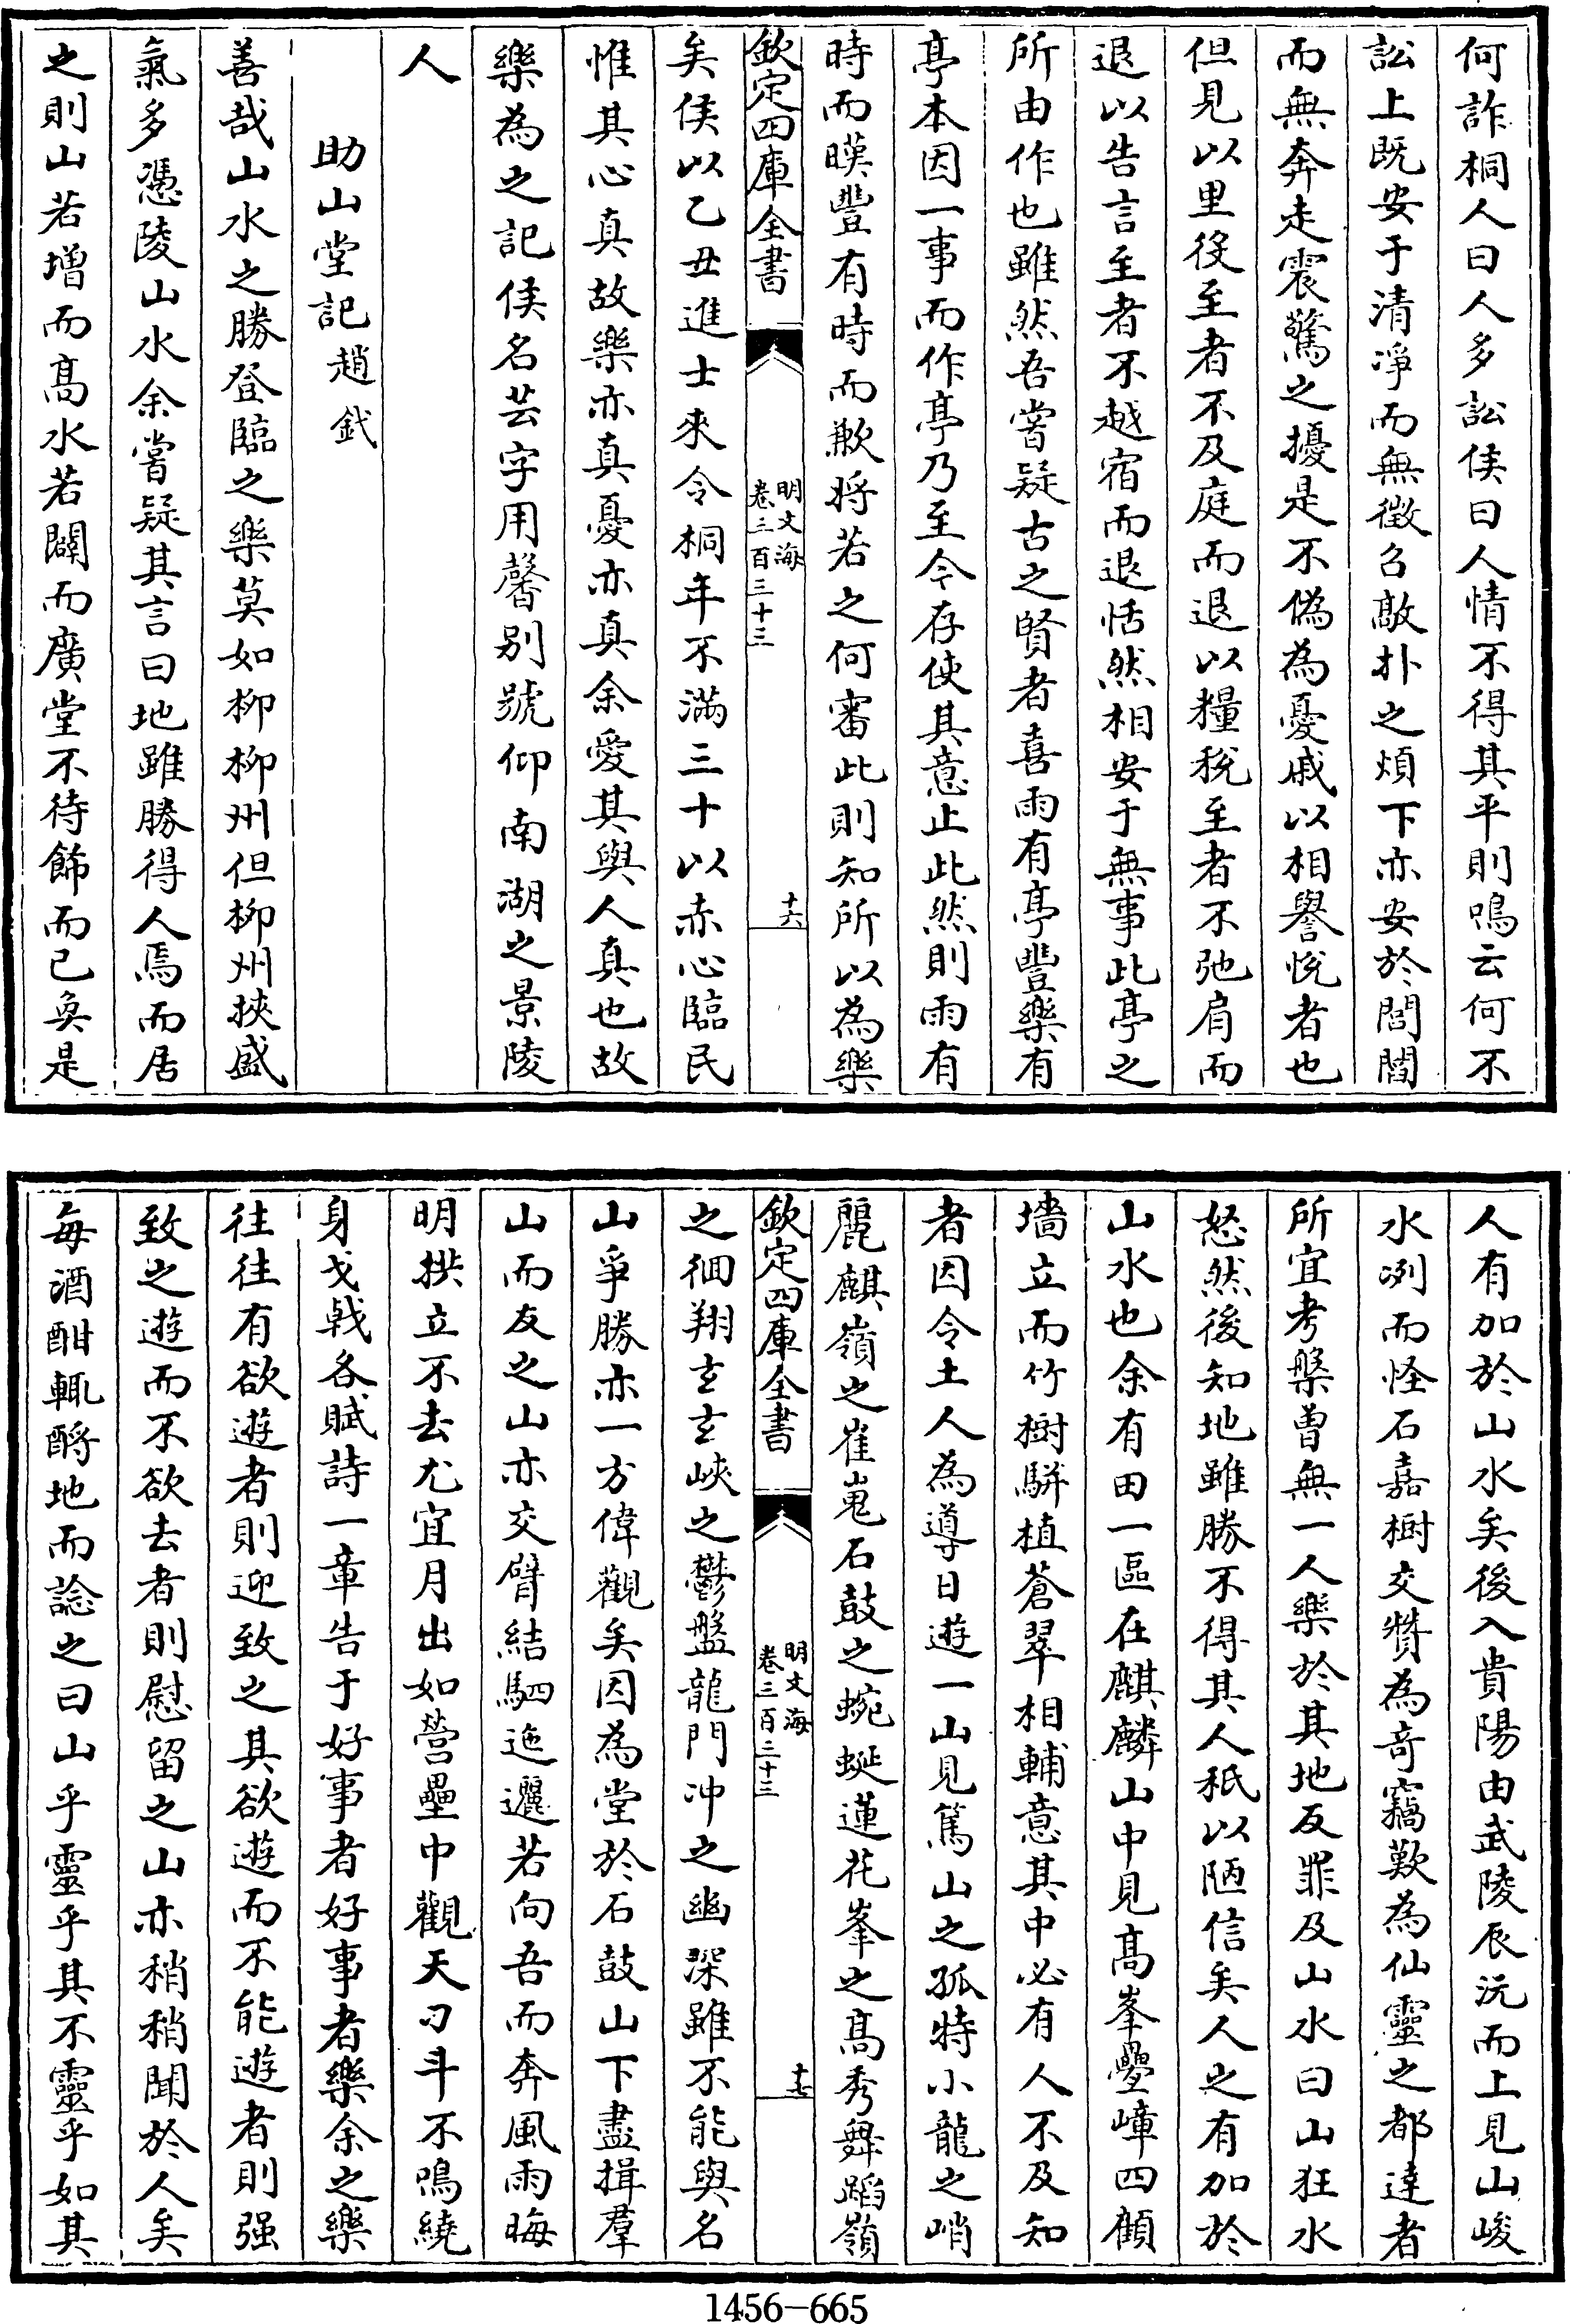 何詐桐人曰人多訟侯曰人情不得其平則鳴云何不
訟上既安于清凈而無徴召敲扑之煩下亦安於閭閻
而無奔走震驚之擾是不偽為憂戚以相譽悅者也
但見以里役至者不及庭而退以糧稅至者不弛肩而
退以告言至者不越宿而退恬然相安于無事此亭之
所由作也雖然吾嘗疑古之賢者喜雨有亭豐樂有
亭本因一事而作亭乃至今存使其意止此然則雨有
時而暵豐有時而歉將若之何審此則知所以為樂
欽定四庫全書
明文海
卷三百三十三
十六
矣侯以乙丑進士來令桐年不滿三十以赤心臨民
惟其心真故樂亦真憂亦真余愛其與人真也故
樂為之記侯名芸字用馨别號仰南湖之景陵
人
助山堂記趙釴
善哉山水之勝登臨之樂莫如柳柳州但柳州挾盛
氣多憑陵山水余嘗疑其言曰地雖勝得人焉而居
之則山若增而髙水若闢而廣堂不待飾而已奐是
人有加於山水矣後入貴陽由武陵辰沅而上見山峻
水冽而怪石嘉樹交贊為竒竊歎為仙靈之都達者
所宜考槃曽無一人樂於其地反罪及山水曰山狂水
怒然後知地雖勝不得其人秖以陋信矣人之有加於
山水也余有田一區在麒麟山中見髙峯疊嶂四顧
墻立而竹樹駢植蒼翠相輔意其中必有人不及知
者因令土人為導日遊一山見篤山之孤特小龍之峭
麗麒嶺之崔嵬石鼓之蜿蜒蓮花峯之髙秀舞蹈嶺
欽定四庫全書
明文海
卷三百三十三
十七
之徊翔玄玄峽之鬱盤龍門冲之幽深雖不能與名
山爭勝亦一方偉觀矣因為堂於石鼓山下盡揖羣
山而友之山亦交臂結駟迤邐若向吾而奔風雨晦
明拱立不去尤宜月出如營壘中觀天刁斗不鳴繞
身戈戟各賦詩一章告于好事者好事者樂余之樂
往往有欲遊者則迎致之其欲遊而不能遊者則强
致之遊而不欲去者則慰留之山亦稍稍聞於人矣
每酒酣輒酹地而諗之曰山乎靈乎其不靈乎如其
1456-665